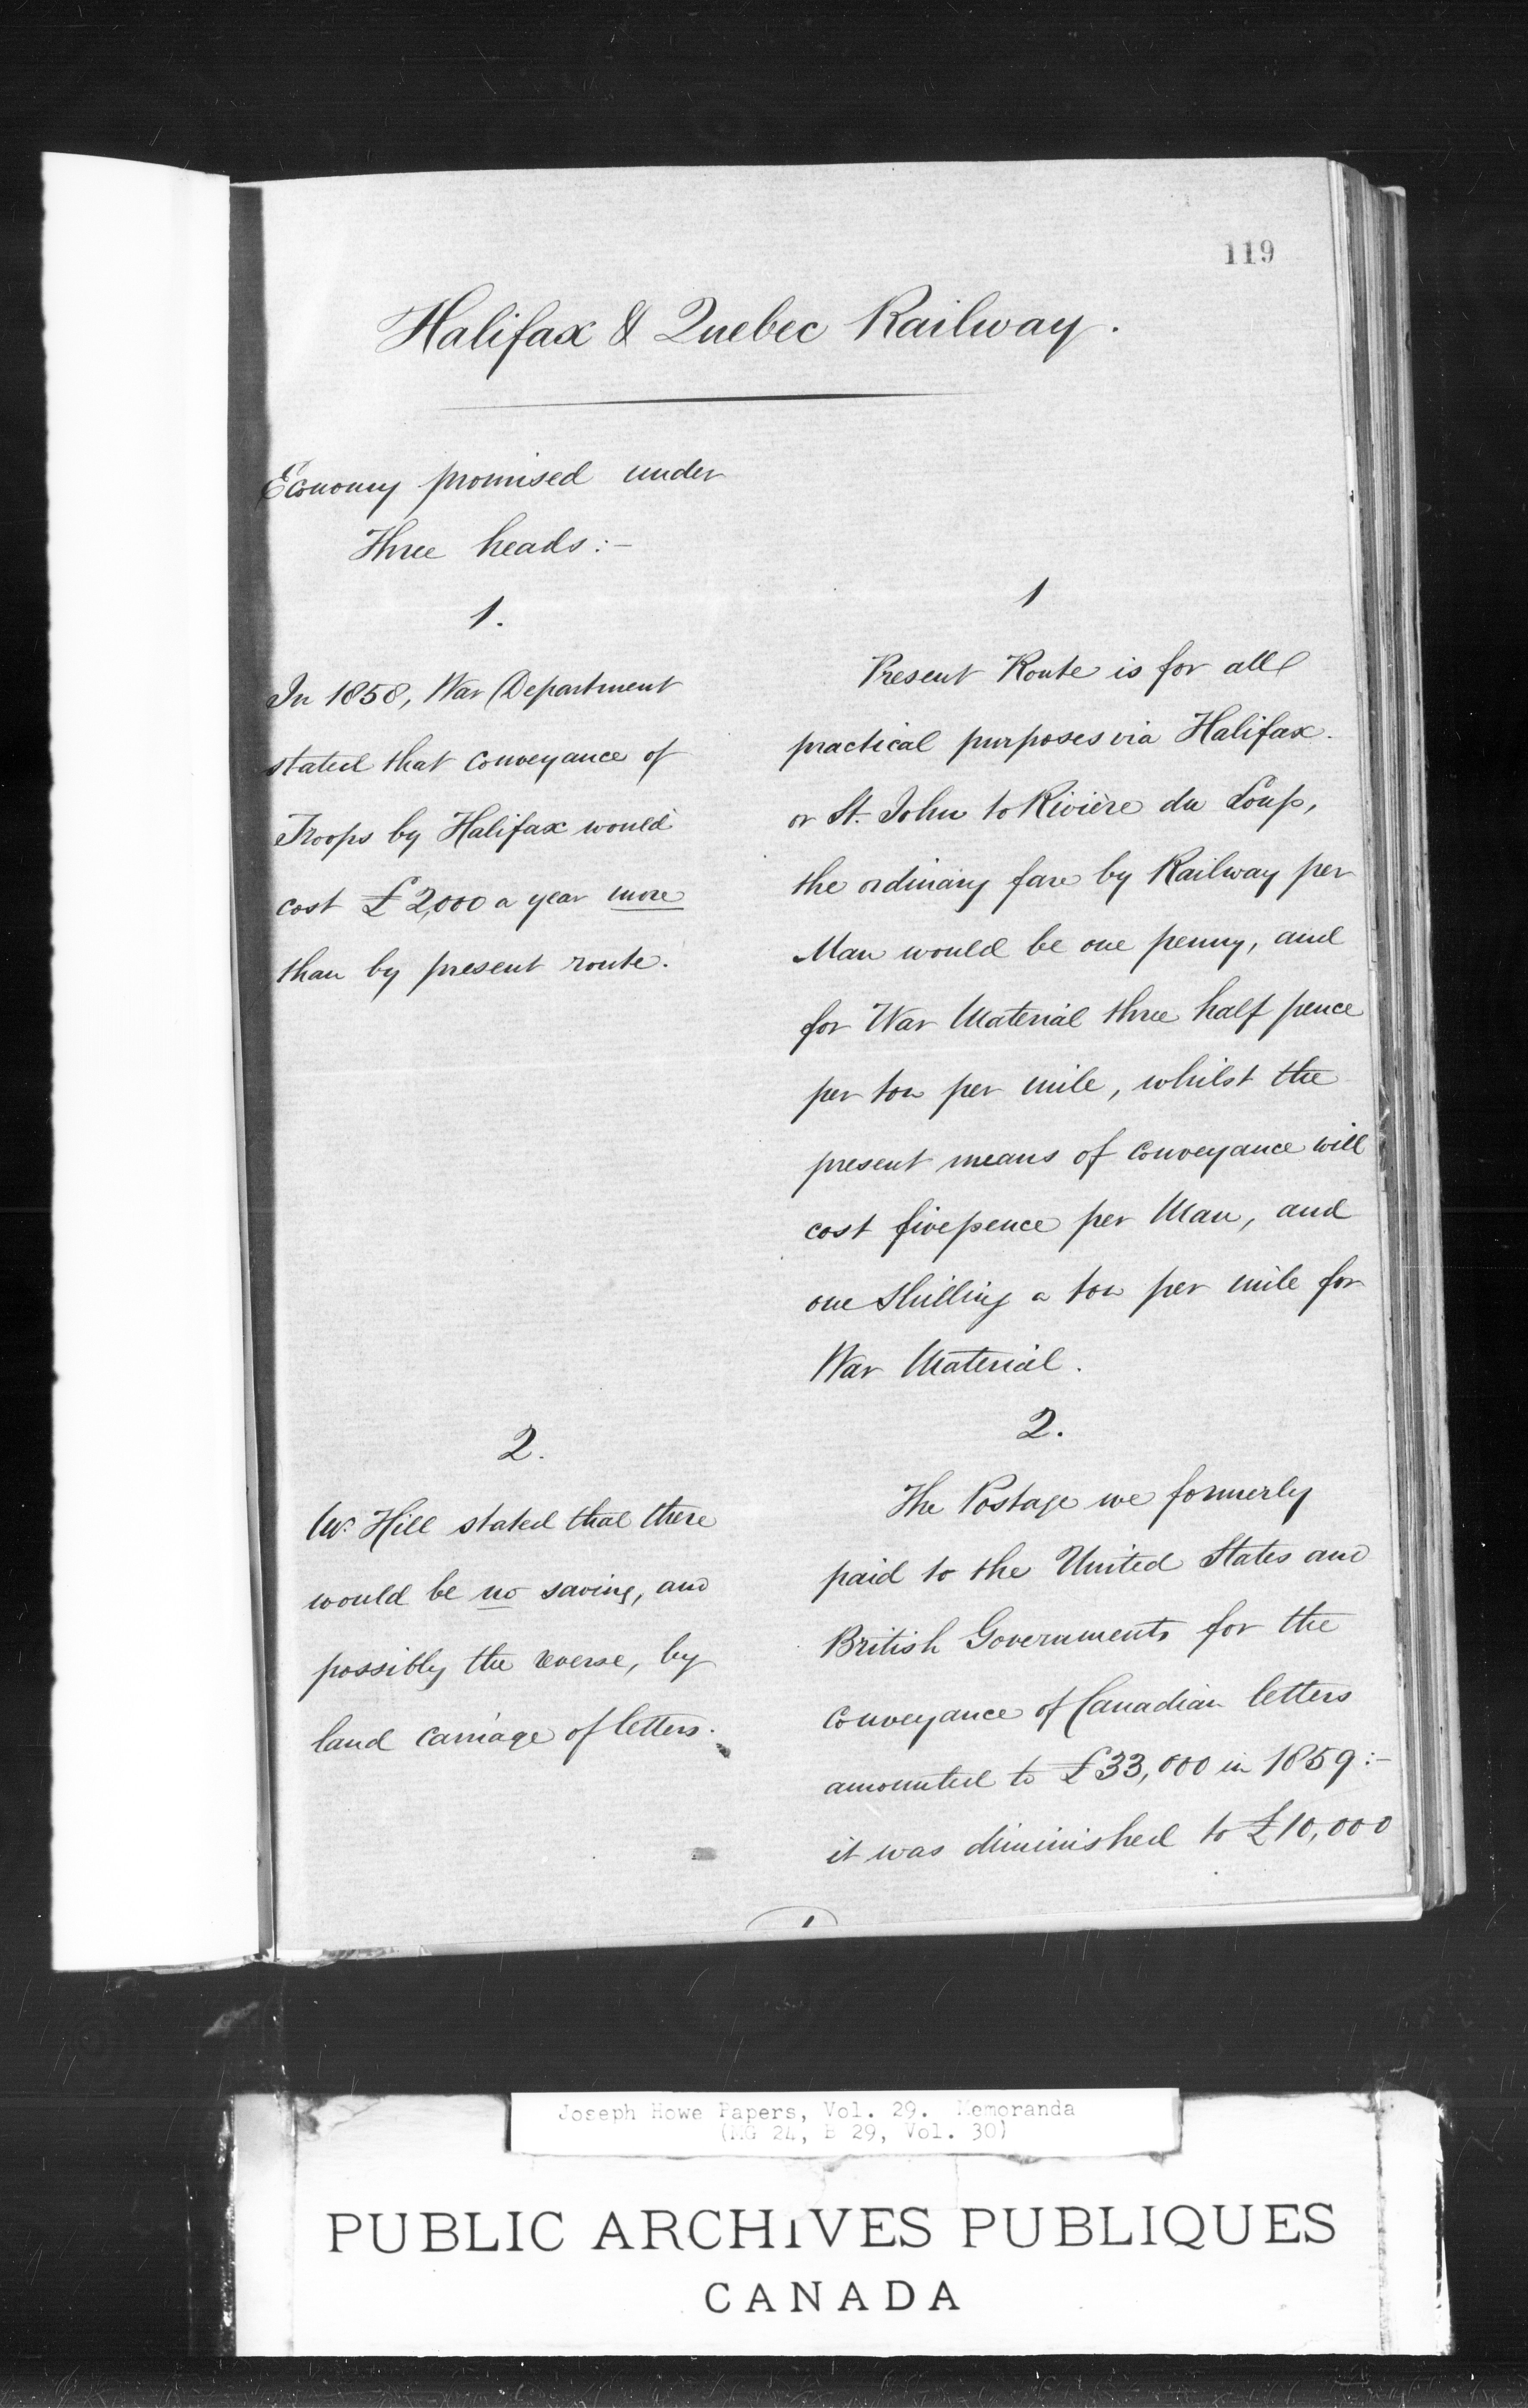 119
Halifax & Quebec Railway.
Economy promised under
Three heads:-
1.
In 1858, War Department
stated that conveyance of
Troops by Halifax would
cost £2,000 a year more
than by present route.
2.
Mr. Hill stated that there
would be no saving, and
possibly the reverse, by
land carriage of letters.
1
Present Route is for all
practical purposes via Halifax.
or St. John to Rivière du Loup,
the ordinary fare by Railway per
Man would be one penny, and
for War Material three half pence
per ton per mile, whilst the
present means of conveyance will
cost fivepence per Man, and
one Shilling a ton per mile for
War Material.
2.
The Postage we formerly
paid to the United States and
British Governments for the
conveyance of Canadian letters
amounted to £33,000 in 1859:-
it was diminished to £10,000
1
Joseph Howe Papers, Vol. 29. Memoranda
(MG 24, B 29, Vol. 30)
PUBLIC ARCHIVES PUBLIQUES
CANADA